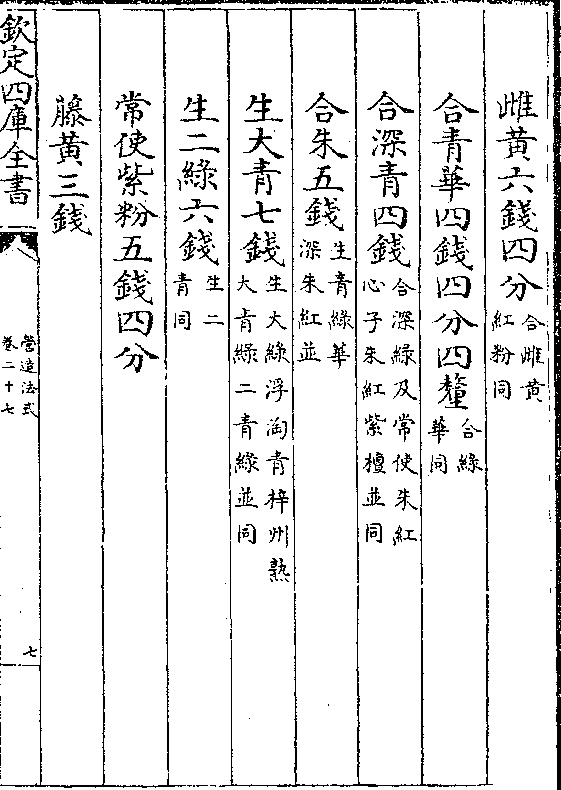 雌黄六錢四分合雌黄紅粉同
合青華四錢四分四釐合綠華同
合深青四錢合深綠及常使朱紅心子朱紅紫檀並同
合朱五錢生青綠華深朱紅並同
生大青七錢生大綠浮淘青梓州熟大青綠二青綠並同
生二綠六錢生二青同
常使紫粉五錢四分
藤黄三錢
欽定四庫全書
營造法式
卷二十七
七